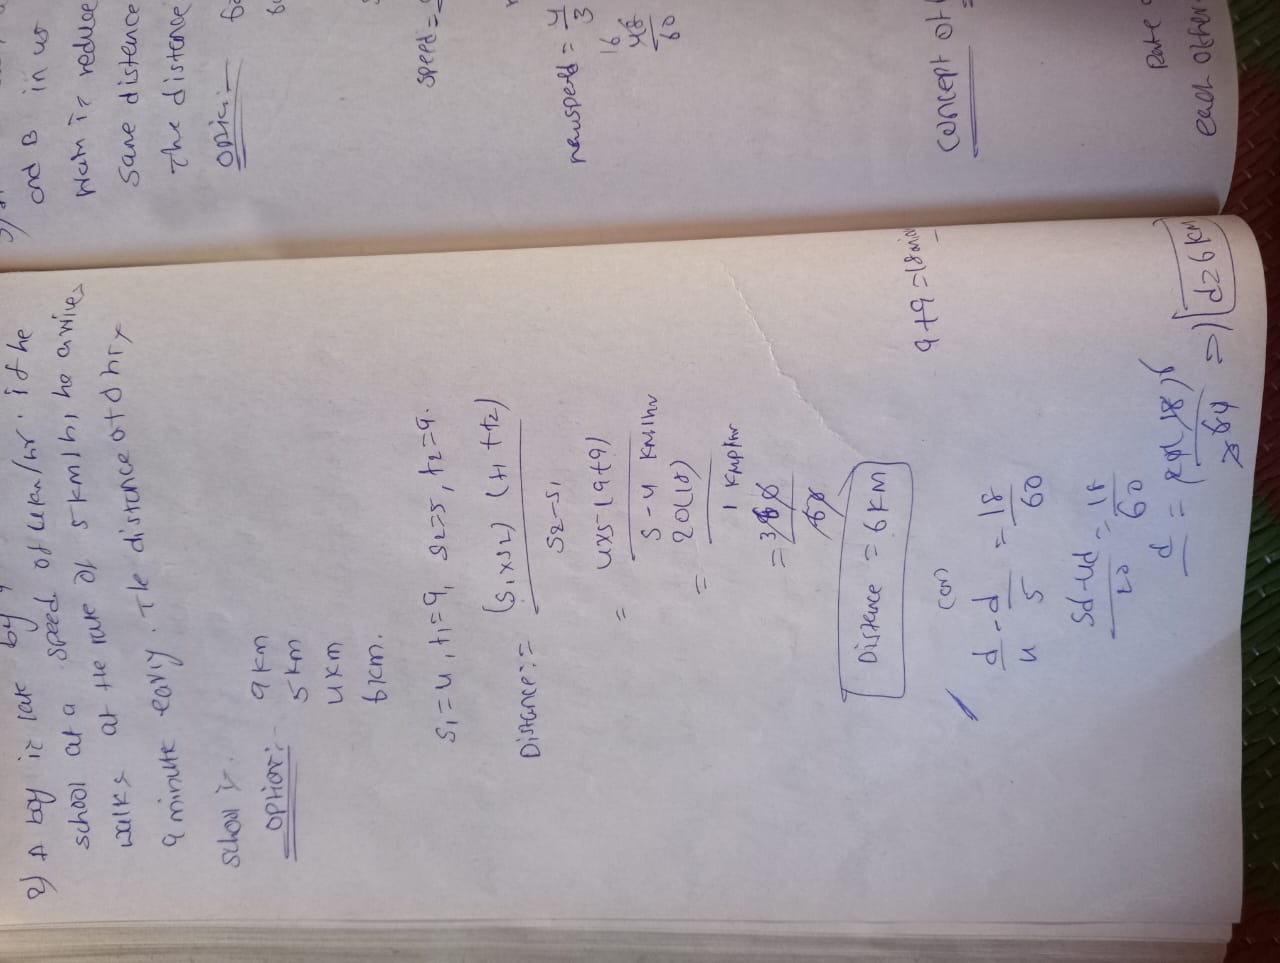 2) A boy is late by 9
school at a speed of 4km/hr. if he
walks at the rate of 5km/h, he arrives
9 minute early. The distance of
school is.
option:- 9km
5km
4km
6km.
S1=4, t1=9, S2=5, t2=9.
Distance:= (S1×S2) (t1+t2)
S2-S1
= 4×5-(9+9)
5-4 km/hr
= 20(18)
1 kmphr
= 360
60
Distance = 6 KM
(or)
9+9=18min
d/4 - d/5 = 18/60
5d-4d/20 = 18/60
=> d=6KM
and B in
same distance
The distance
option:-
speed=
newspeed = 4/3
16
48
60
concept of
Rate
each other